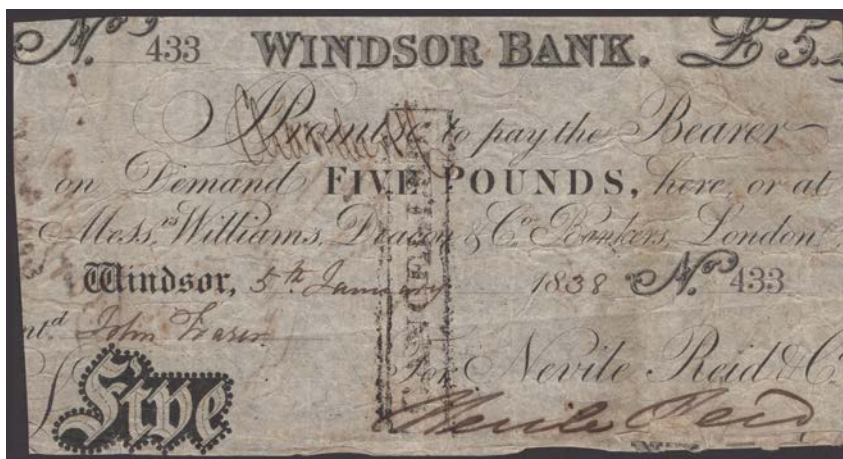 No. 433 WINDSOR BANK. £5.
I Promise to pay the Bearer
on Demand FIVE POUNDS, here, or at
Messrs. Williams, Deacon & Co. Bankers, London.
Windsor, 5th January 1838 No. 433
Entd. John Fraser
For Nevile Reid & Co.
Five
Nevile Reid
CANCELLED